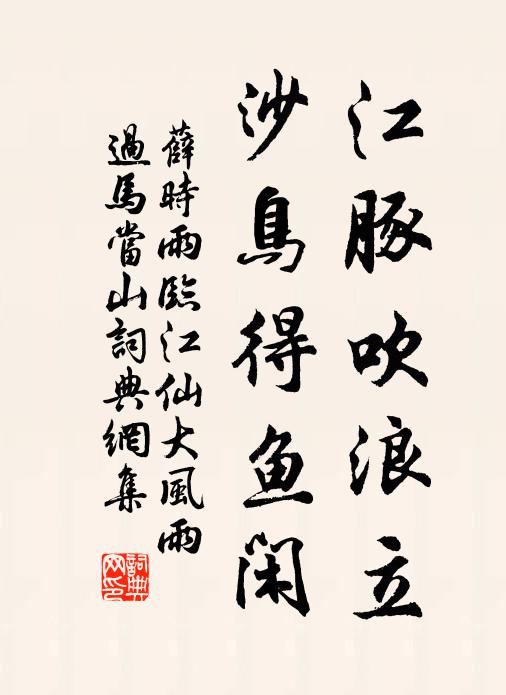 江豚吹浪立
沙鳥得鱼閑
薛時雨臨江仙大風雨
過馬當山詞典網集
詞典
网印